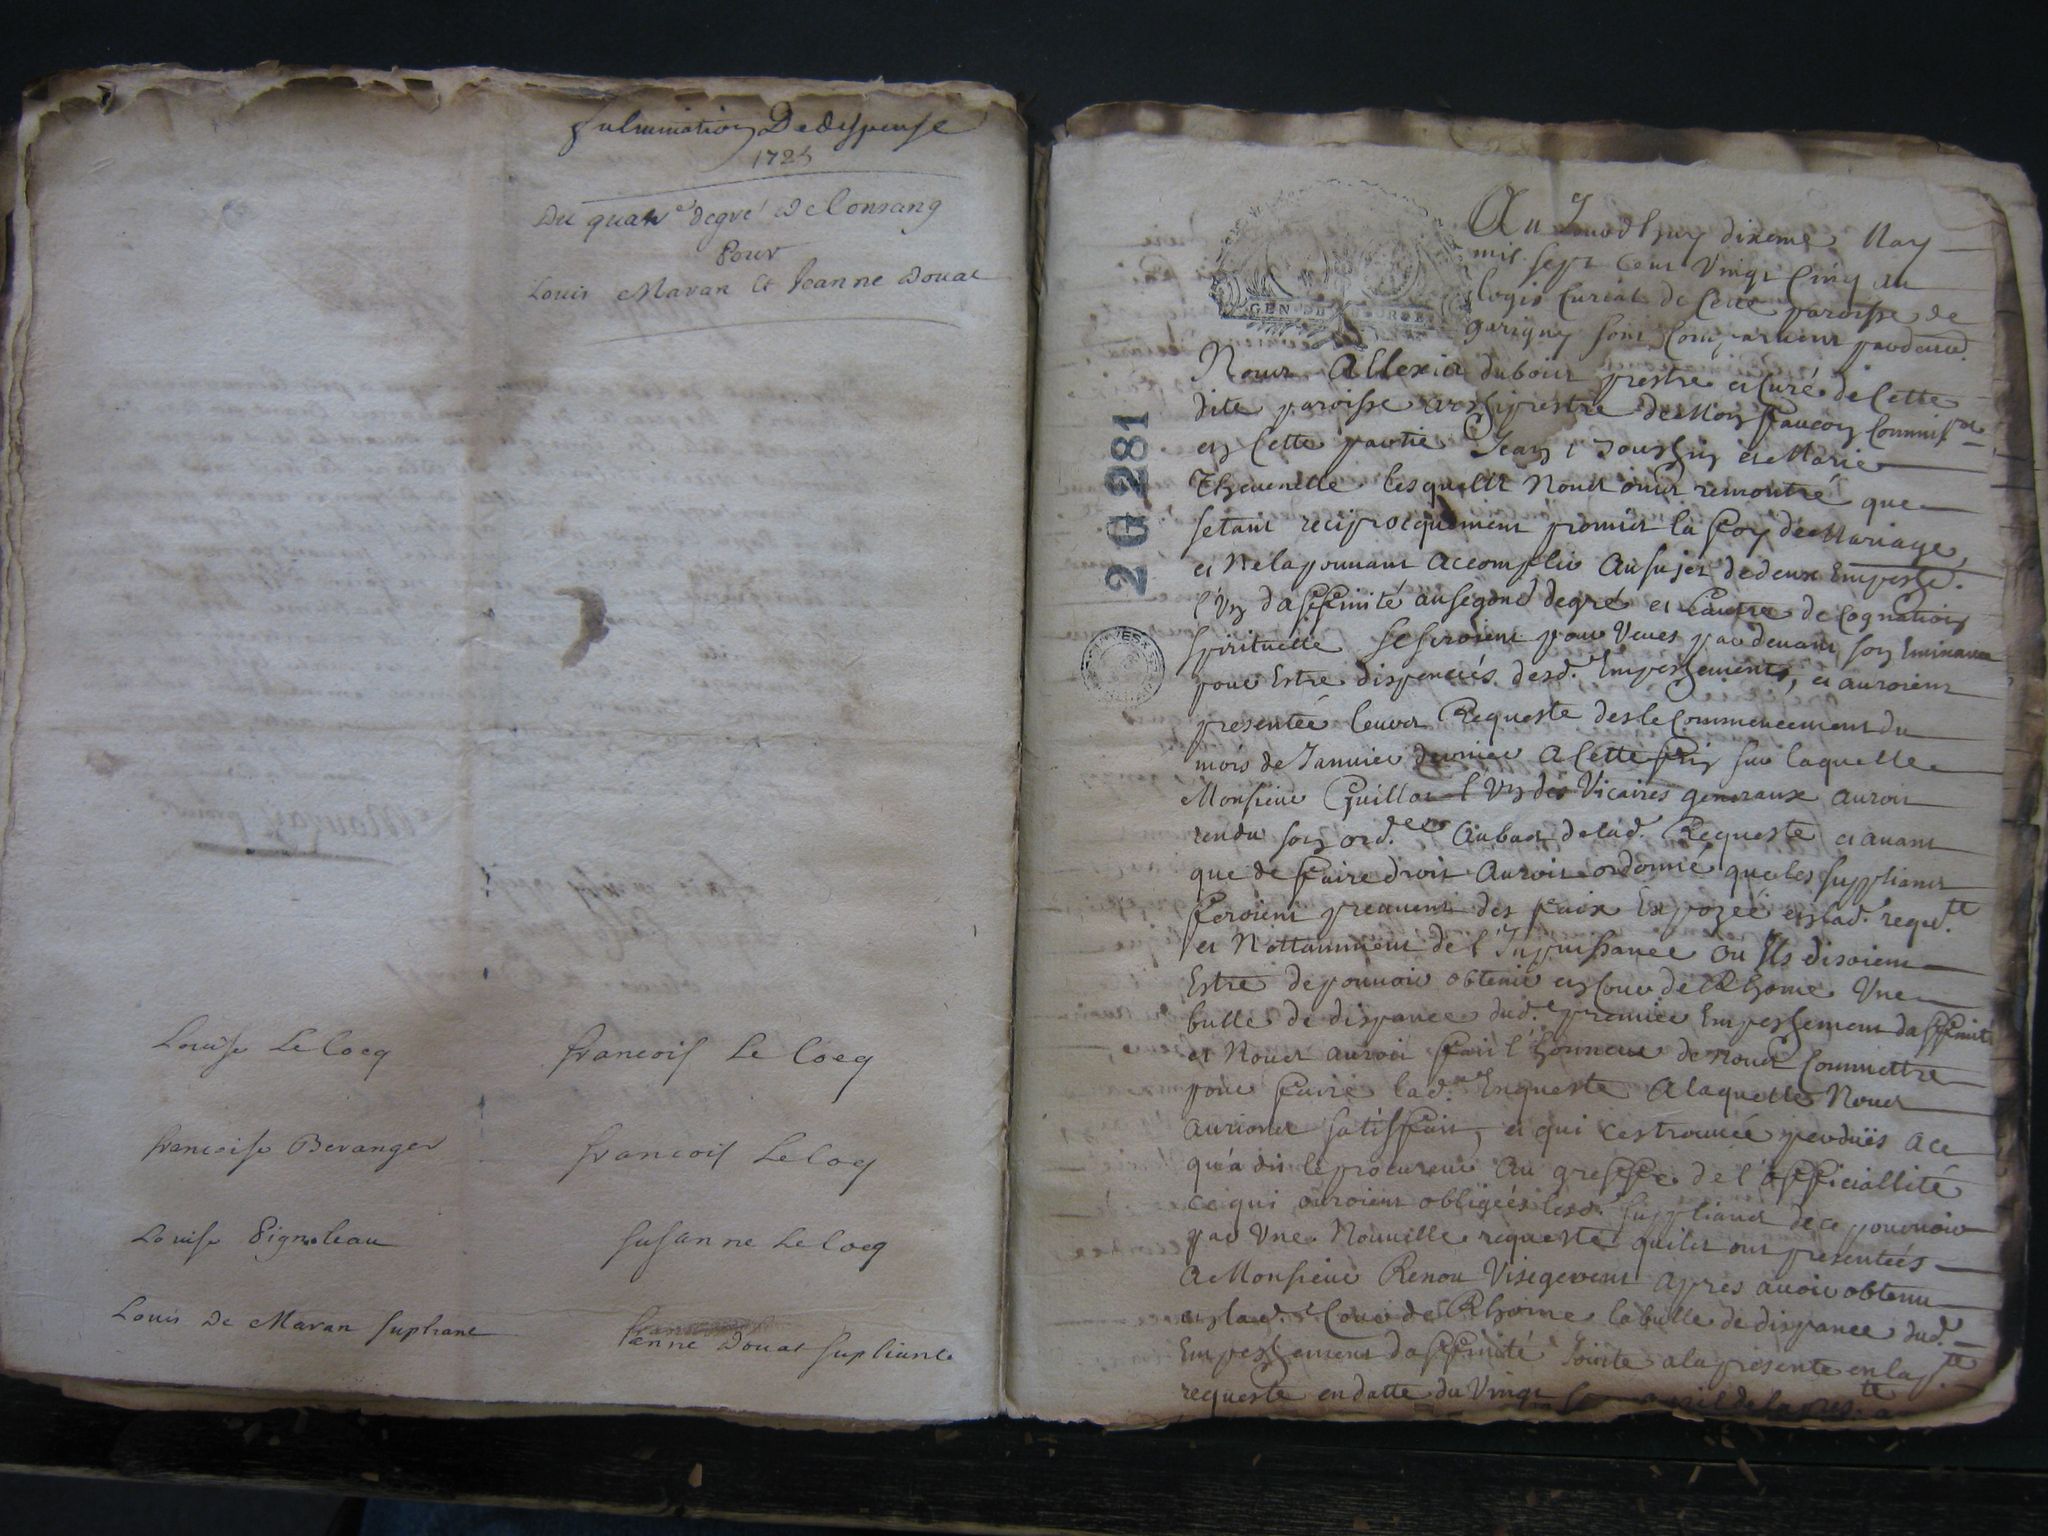 fulmination De dispense
1725
Du quatre degré de Consang
Pour
Louis Maran et Jeanne Douat
Louise Le Cocq
francois Le Cocq
francoise Beranger
francois Le Cocq
Louise Pignoleau
susanne Le Cocq
Louis De Maran supliant
Jenne Douat supliante
2 G 281
GEN DE BOURGES
Au Jourdhuy dixeme May
mil sept Cent Vingt Cinq au
logis Curial de Cette paroisse de
garigny sont Comparuent pardevant
Nous Allexis dubois prestre et Curé de Cette
dite paroisse archiprestre de Montfaucon Commiss.re
en Cette partie Jean Joushin et Marie
Thevenelle lesquelles Nous onts remontré que
setant reciproquement promis la foy de Mariage
et Ne la pouvant accomplir au sujet de deux Empeshe.
l'Un daffinité au segond degré et lautre de Cognation
spirituelle se seroient pour Veues par devant son Eminance
pour Estre dispencés desd. Empeshements, et auroient
presentée leurs Requeste des le Commencement du
mois de Janvier dernier a Cette fin sur laquelle
Monsieur Guillot l'Un des Vicaires generaux auroit
rendu son ord.ce au bas de lad. Requeste et avant
que de faire droit auroit ordonné que les suppliants
feroient preuvent des faix Expozée en lad. requ.te
et Nottamment de l'Inpuissance ou Ils disoient
Estre de pouvoir obtenir en Cour de Rhome Une
bulle de dispance dud. premier Empeshement daffinité
et Nous auroit fait l'honneur de nous Commettre
pour faire lad. Enqueste a laquelle Nous
aurions satisfait, et qui cestrouvée perduës a ce
qu'a dit le procureur au greffe de l'officiallité
ce qui auroient obligées lesd. suppliants de ce pourvoir
par Une Nouvelle requeste quiles ont presentées
a Monsieur Renou Visegerent apres avoir obtenu
en lad. Cour de Rhome la bulle de dispance dud.
Empeshement daffinité Jointe a la presente en lad.
requeste en datte du Vingt avril de la pres.te a